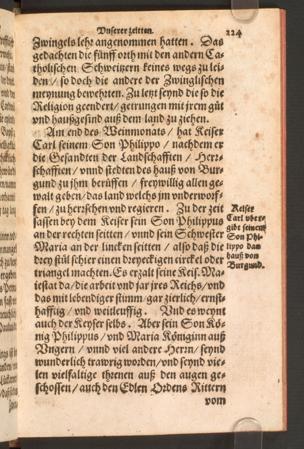 Vnserer zeitten. 224
Zwingels lehr angenommen hatten. Das
gedachten die fünff orth mit den andern Ca-
tholischen Schweitzern keines wegs zu lei-
den / so doch die andere der Zwinglischen
meynung bewehten. Zu letzt seynd die so die
Religion geendert / getrungen mit jrem gut
vnd haußgesind auß dem land zu ziehen.
Am end des Weinmonats / hat Keiser
Carl seinem Son Philippo / nachdem er
die Gesandten der Landschafften / Herr-
schafften / vnnd stedten des hauß von Bur-
gund zu jhm berüffen / freywillig allen ge-
walt geben / das land welchs jm vnderworf-
fen / zu herrschen vnd regieren. Zu der zeit
sassen bey dem Keiser sein Son Philippus
an der rechten seitten / vnnd sein Schwester
Maria an der lincken seitten / also daß die
drey stül schier einen dreyeckigen circkel oder
triangel machten. Es erzalt seine Keis. Ma-
iestat da / die arbeit vnd jar jres Reichs / vnd
das mit lebendiger stimm / gar zierlich / ernst-
hafftig / vnd weitleuffig. Vnd es weynt
auch der Keyser selbs. Aber sein Son Kö-
nig Philippus / vnd Maria Königinn auß
Vngern / vnnd viel andere Herrn / seynd
wunderlich trawrig worden / vnd seynd vie-
len vielfaltige threnen auß den augen ge-
schossen / auch den Edlen Ordens Rittern
vom
Keiser
Carl vber-
gibt seinem
Son Phi-
lippo das
hauß von
Burgund.